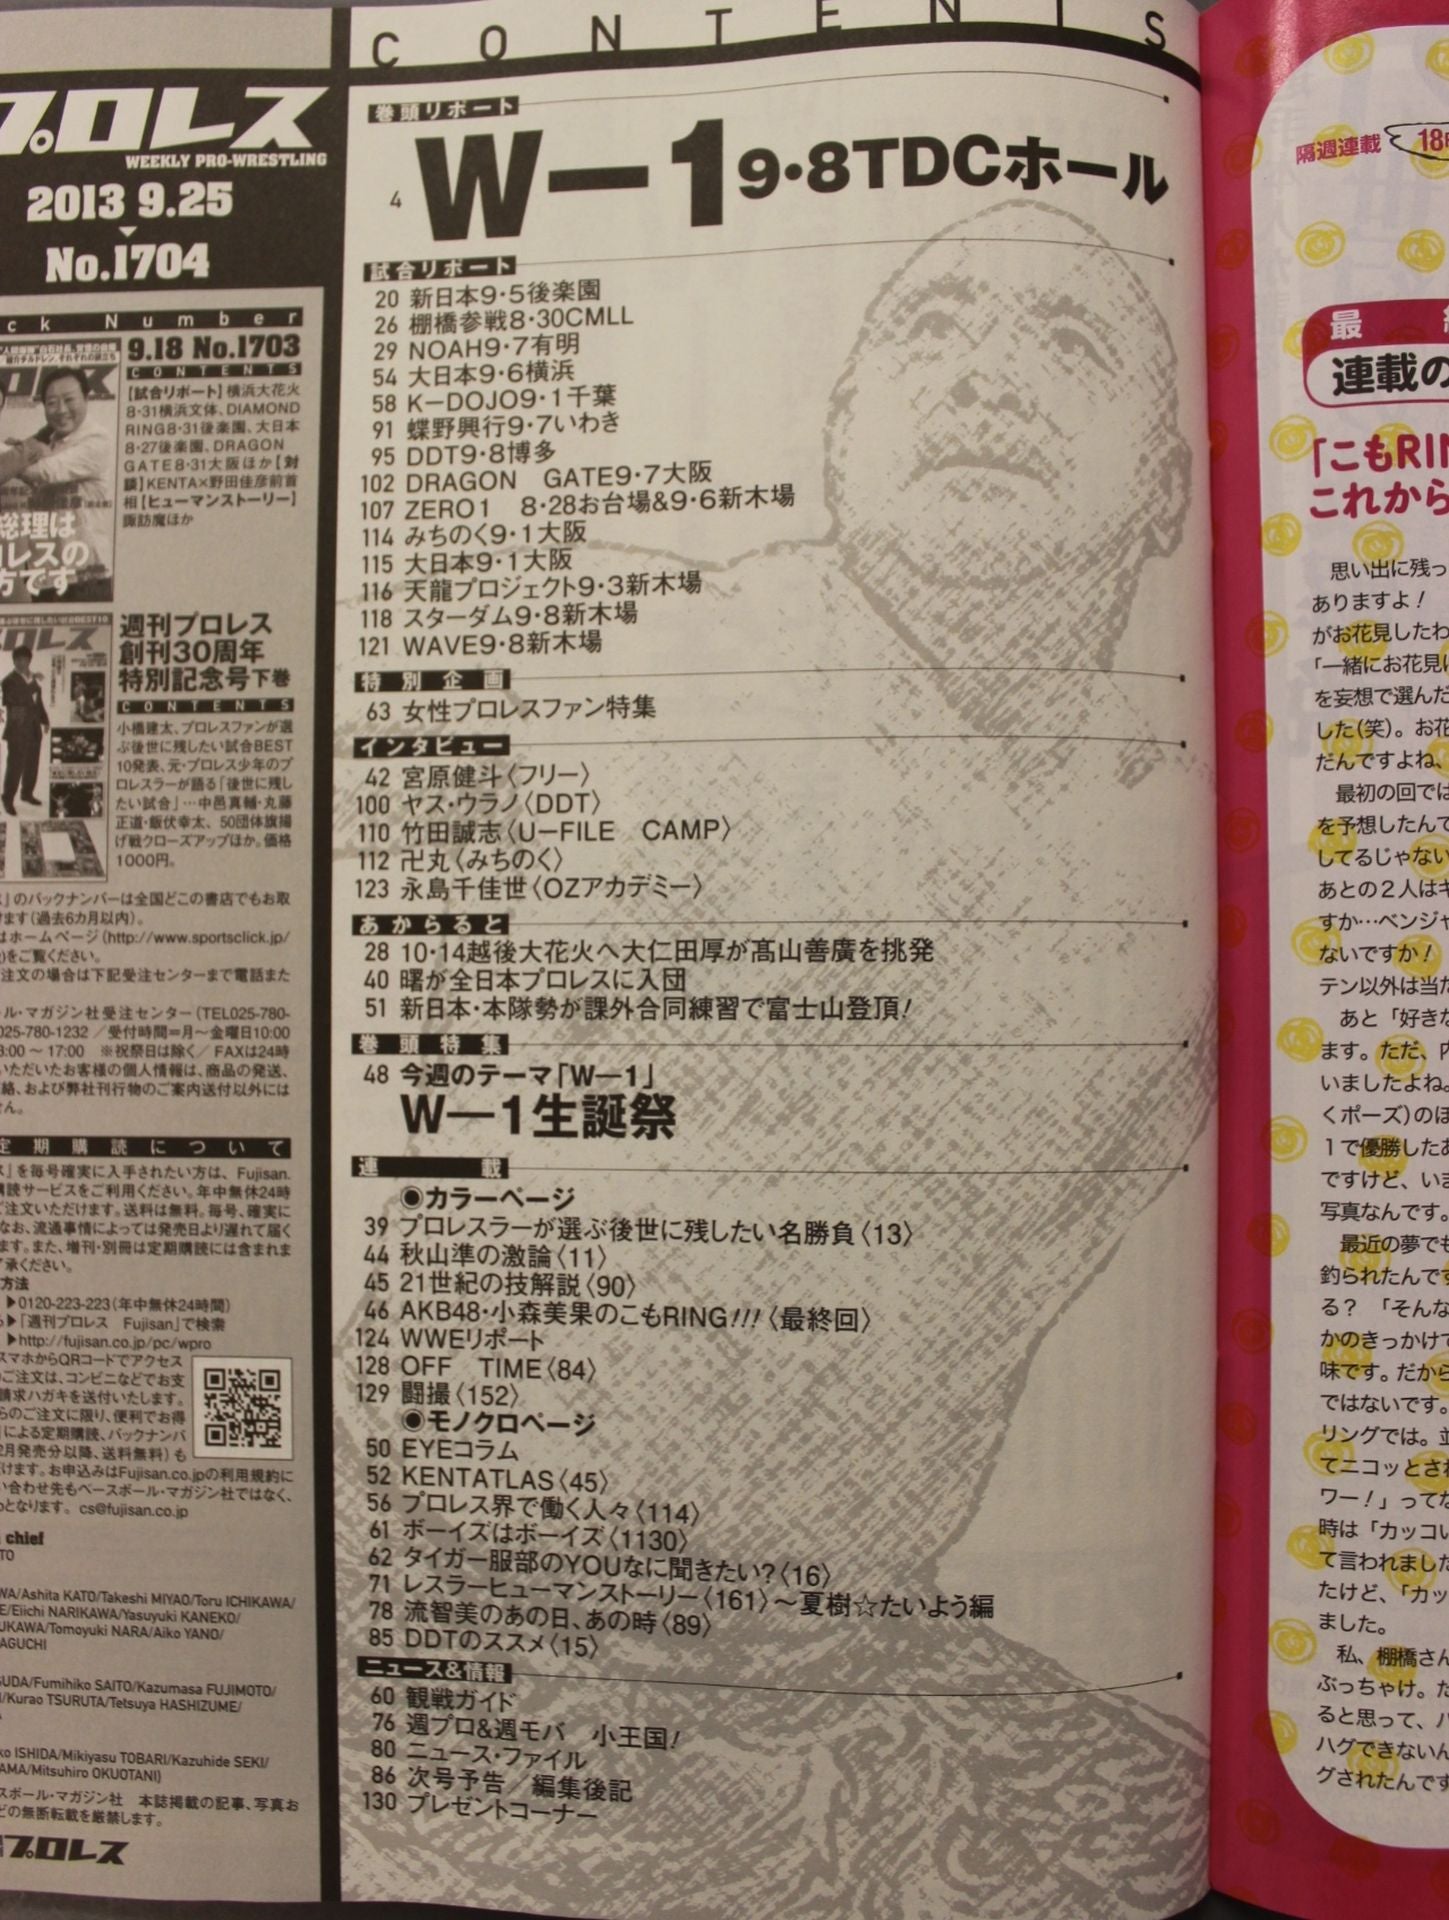 CONTENTS
プロレス
WEEKLY PRO-WRESTLING
2013 9.25
No.1704
ck Number
9.18 No.1703
CONTENTS
【試合リポート】横浜大花火
8・31横浜文体、DIAMOND
RING8・31後楽園、大日本
8・27後楽園、DRAGON
GATE8・31大阪ほか【対
談】KENTA×野田佳彦前首
相【ヒューマンストーリー】
諏訪魔ほか
総理は
ロレスの
方です
週刊プロレス
創刊30周年
特別記念号下巻
CONTENTS
小橋建太、プロレスファンが選
ぶ後世に残したい試合BEST
10発表、元・プロレス少年のプ
ロレスラーが語る「後世に残し
たい試合」…中邑真輔・丸藤
正道・飯伏幸太、50団体旗揚
げ戦クローズアップほか。価格
1000円。
」のバックナンバーは全国どこの書店でもお取
けます（過去6カ月以内）。
はホームページ（http://www.sportsclick.jp/
）をご覧ください。
注文の場合は下記受注センターまで電話また
ル・マガジン社受注センター（TEL025-780-
025-780-1232／受付時間＝月〜金曜日10:00
3:00〜17:00　※祝祭日は除く／FAXは24時
いただいたお客様の個人情報は、商品の発送、
絡、および弊社刊行物のご案内送付以外には
せん。
定期購読について
」を毎号確実に入手されたい方は、Fujisan.
購読サービスをご利用ください。年中無休24時
ご注文いただけます。送料は無料。毎号、確実に
なお、流通事情によっては発売日より遅れて届く
ます。また、増刊・別冊は定期購読には含まれま
了承ください。
方法
▶0120-223-223（年中無休24時間）
▶「週刊プロレス　Fujisan」で検索
▶http://fujisan.co.jp/pc/wpro
スマホからQRコードでアクセス
のご注文は、コンビニなどでお支
請求ハガキを送付いたします。
らのご注文に限り、便利でお得
による定期購読、バックナンバ
2月発売分以降、送料無料）も
けます。お申込みはFujisan.co.jpの利用規約に
い合わせ先もベースボール・マガジン社ではなく、
となります。cs@fujisan.co.jp
chief
TO
WA/Ashita KATO/Takeshi MIYAO/Toru ICHIKAWA/
E/Eiichi NARIKAWA/Yasuyuki KANEKO/
UKAWA/Tomoyuki NARA/Aiko YANO/
AGUCHI
SUDA/Fumihiko SAITO/Kazumasa FUJIMOTO/
/Kurao TSURUTA/Tetsuya HASHIZUME/
ko ISHIDA/Mikiyasu TOBARI/Kazuhide SEKI/
AMA/Mitsuhiro OKUOTANI)
スボール・マガジン社　本誌掲載の記事、写真お
どの無断転載を厳禁します。
プロレス
巻頭リポート
4 W―1 9・8TDCホール
試合リポート
20 新日本9・5後楽園
26 棚橋参戦8・30CMLL
29 NOAH9・7有明
54 大日本9・6横浜
58 K―DOJO9・1千葉
91 蝶野興行9・7いわき
95 DDT9・8博多
102 DRAGON　GATE9・7大阪
107 ZERO1　8・28お台場&9・6新木場
114 みちのく9・1大阪
115 大日本9・1大阪
116 天龍プロジェクト9・3新木場
118 スターダム9・8新木場
121 WAVE9・8新木場
特別企画
63 女性プロレスファン特集
インタビュー
42 宮原健斗〈フリー〉
100 ヤス・ウラノ〈DDT〉
110 竹田誠志〈U―FILE　CAMP〉
112 卍丸〈みちのく〉
123 永島千佳世〈OZアカデミー〉
あからると
28 10・14越後大花火へ大仁田厚が髙山善廣を挑発
40 曙が全日本プロレスに入団
51 新日本・本隊勢が課外合同練習で富士山登頂！
巻頭特集
48 今週のテーマ「W―1」
W―1生誕祭
連載
◉カラーページ
39 プロレスラーが選ぶ後世に残したい名勝負〈13〉
44 秋山準の激論〈11〉
45 21世紀の技解説〈90〉
46 AKB48・小森美果のこもRING!!!〈最終回〉
124 WWEリポート
128 OFF　TIME〈84〉
129 闘撮〈152〉
◉モノクロページ
50 EYEコラム
52 KENTATLAS〈45〉
56 プロレス界で働く人々〈114〉
61 ボーイズはボーイズ〈1130〉
62 タイガー服部のYOUなに聞きたい？〈16〉
71 レスラーヒューマンストーリー〈161〉〜夏樹☆たいよう編
78 流智美のあの日、あの時〈89〉
85 DDTのススメ〈15〉
ニュース&情報
60 観戦ガイド
76 週プロ&週モバ　小王国！
80 ニュース・ファイル
86 次号予告／編集後記
130 プレゼントコーナー
隔週連載
18
最
連載の
「こもRIN
これから
思い出に残っ
ありますよ！
がお花見したわ
「一緒にお花見に
を妄想で選んだ
した（笑）。お花
だんですよね、
最初の回では
を予想したんで
してるじゃない
あとの2人はキ
すか…ベンジャ
ないですか！
テン以外は当た
あと「好きな
ます。ただ、内
いましたよね。
くポーズ）のほ
1で優勝したあ
ですけど、いま
写真なんです。
最近の夢でも
釣られたんです
る？　「そんな
かのきっかけで
味です。だから
ではないです。
リングでは。並
てニコッとされ
ワー！」ってな
時は「カッコい
て言われました
たけど、「カッ
ました。
私、棚橋さん
ぶっちゃけ。た
ると思って、ハ
ハグできないん
グされたんです